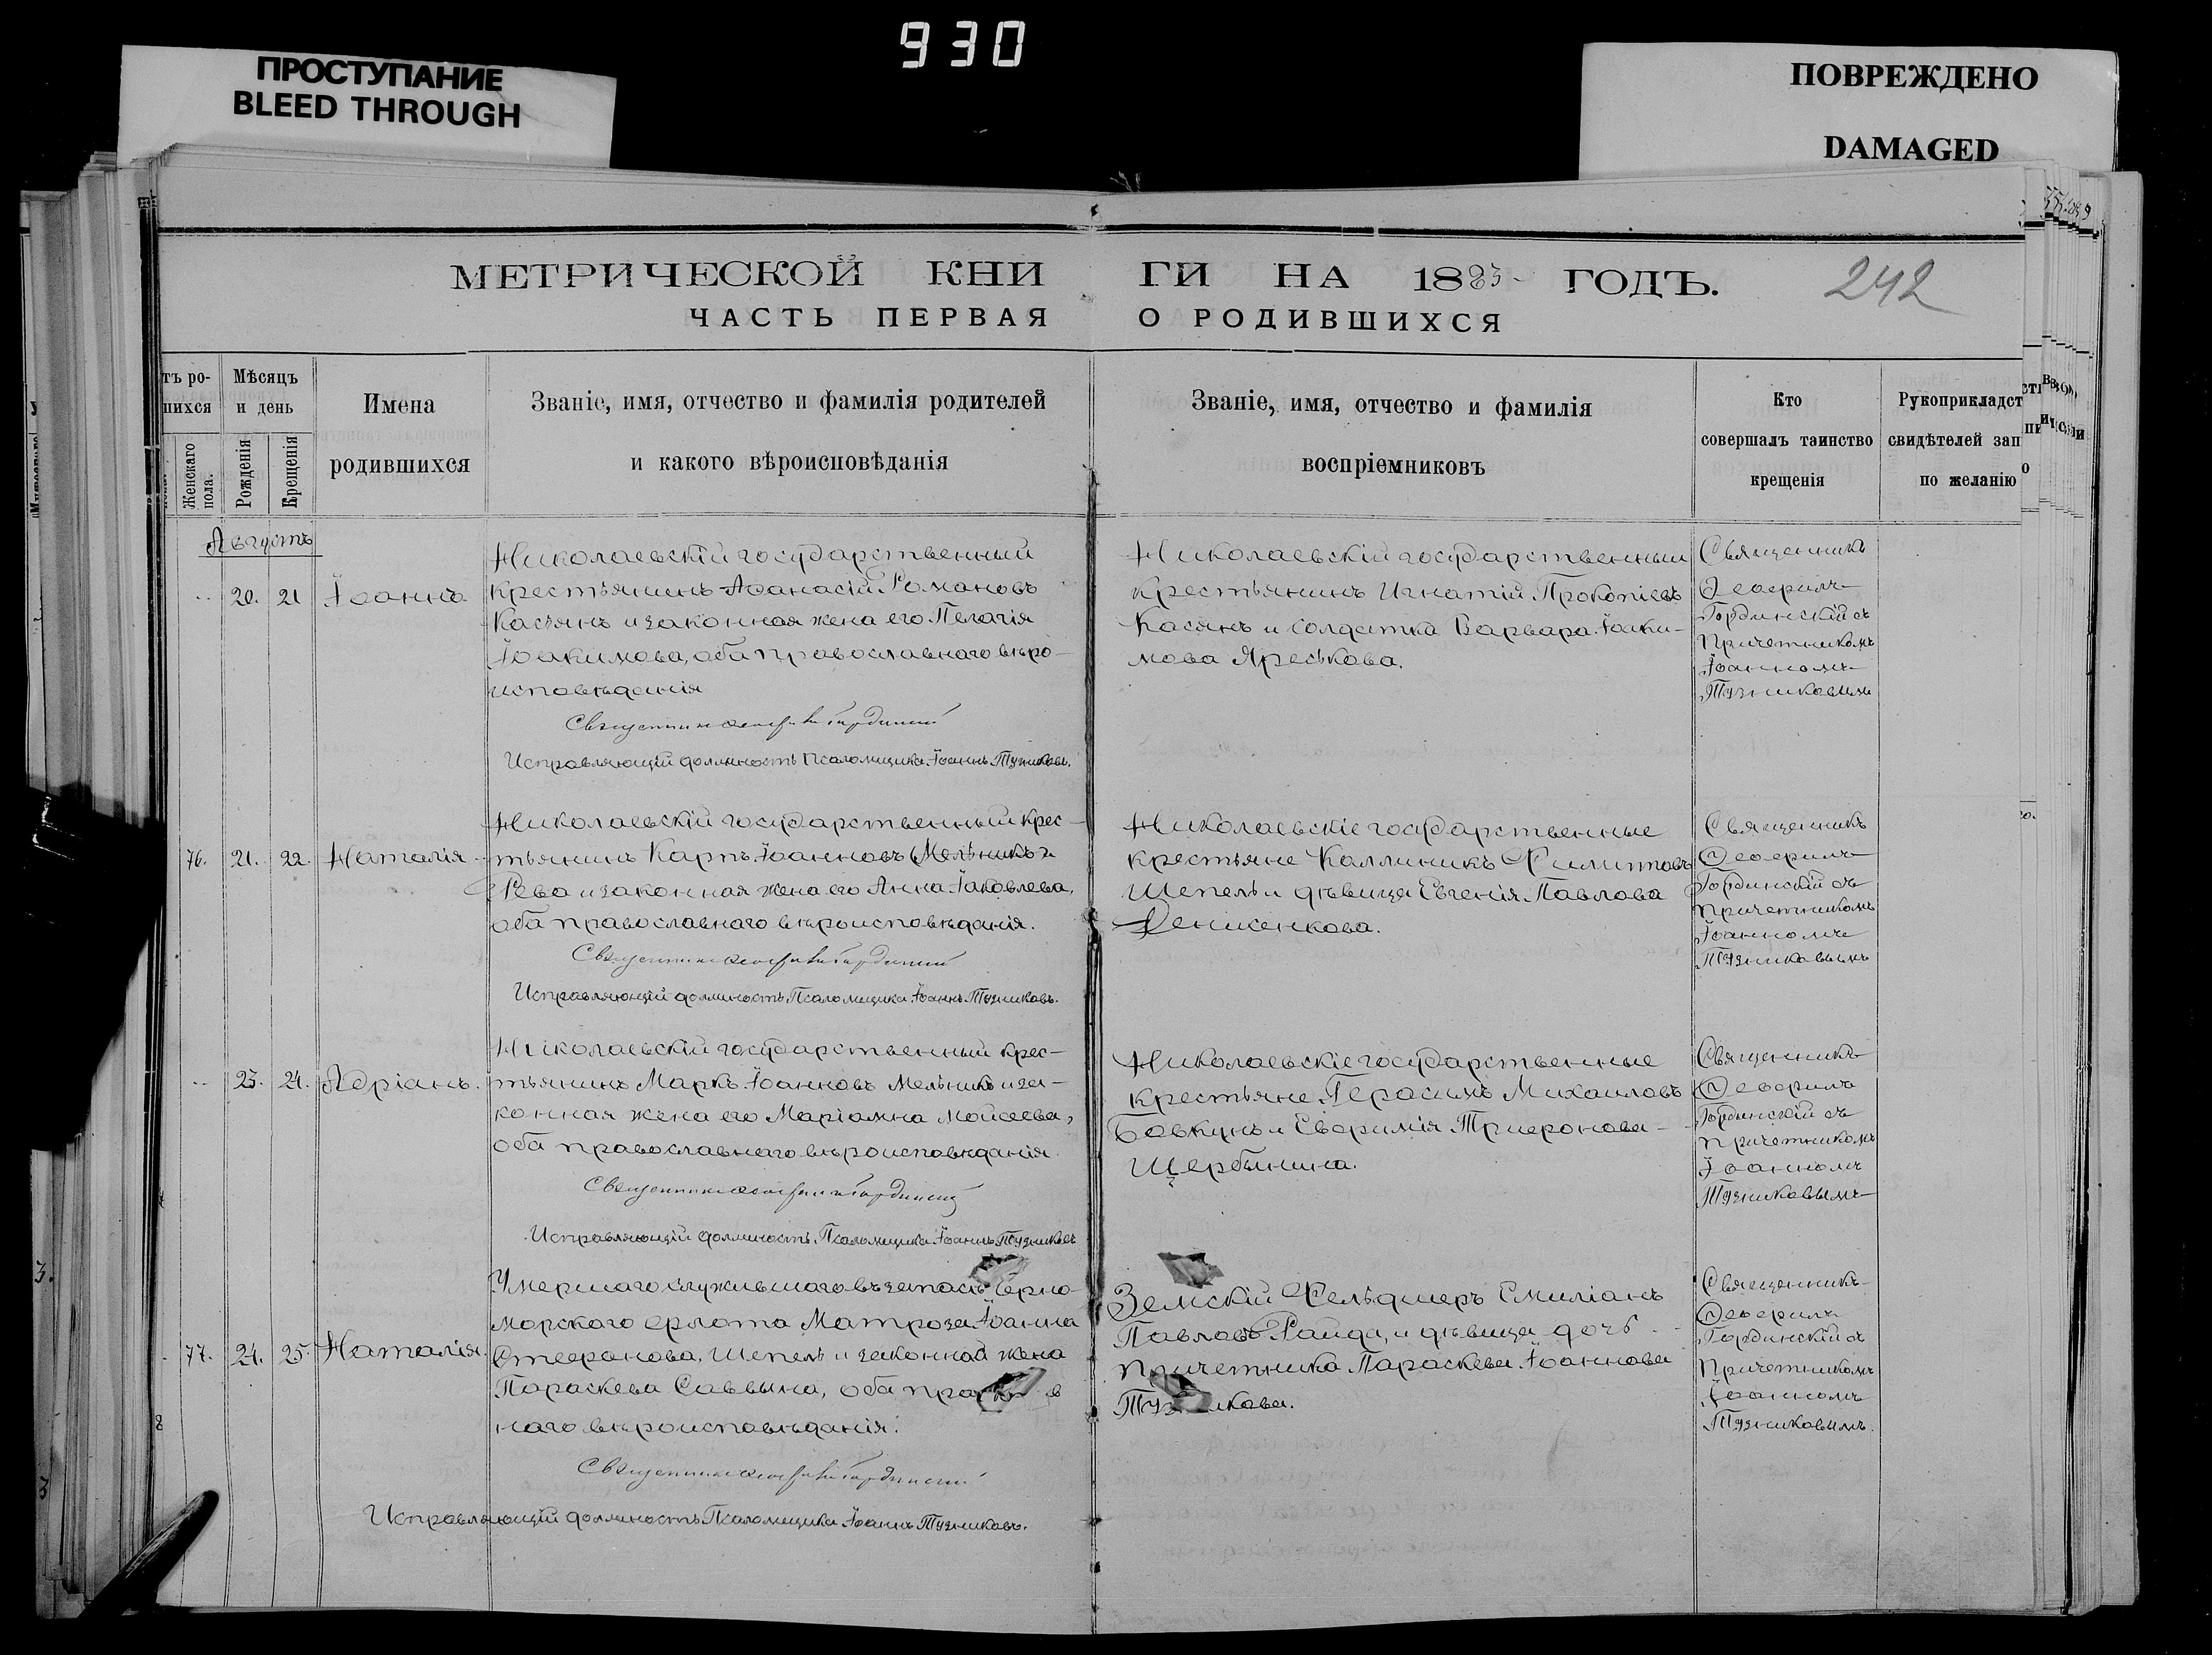 930
ПРОСТУПАНИЕ
BLEED THROUGH
ПОВРЕЖДЕНО
DAMAGED
МЕТРИЧЕСКОЙ КНИ ГИ НА 1883 ГОДЪ.
242
ЧАСТЬ ПЕРВАЯ О РОДИВШИХСЯ
тъ ро-
шихся
Женскаго
пола.
Мѣсяцъ
и день
Рожденія
Крещенія
Имена
родившихся
Званіе, имя, отчество и фамилія родителей
и какого вѣроисповѣданія
Званіе, имя, отчество и фамилія
воспріемниковъ
Кто
совершалъ таинство
крещенія
Рукоприкладст
свидѣтелей зап
по желанію
Августъ
20. 21 Іоаннъ
Николаевскій государственный
крестьянинъ Аѳанасій Романовъ
Касьянъ и законная жена его Пелагія
Іоакимова, оба православнаго вѣро-
исповѣданія
Священникъ Ѳеофилъ Гординскій
Исправляющій должность Псаломщика Іоаннъ Тузниковъ.
Николаевскій государственный
крестьянинъ Игнатій Прокопіевъ
Касянъ и солдатка Варвара Іоаки-
мова Яреськова.
Священникъ
Ѳеофилъ
Гординскій съ
Причетникомъ
Іоанномъ
Тузниковымъ
76. 21. 22. Наталія
Николаевскій государственный крес-
тьянинъ Карпъ Іоанновъ Мельникъ и
Рева и законная жена его Анна Іаковлева,
оба православнаго вѣроисповѣданія.
Священникъ Ѳеофилъ Гординскій
Исправляющій должность Псаломщика Іоаннъ Тузниковъ.
Николаевскіе государственные
крестьяне Каллиникъ Филиповъ
Шепель и дѣвица Евгенія Павлова
Денисенкова.
Священникъ
Ѳеофилъ
Гординскій съ
причетникомъ
Іоанномъ
Тузниковымъ
23. 24. Адріанъ.
Николаевскій государственный крес-
тьянинъ Маркъ Іоанновъ Мельникъ и за-
конная жена его Маріамна Моисеева,
оба православнаго вѣроисповѣданія.
Священникъ Ѳеофилъ Гординскій
Исправляющій должность Псаломщика Іоаннъ Тузниковъ
Николаевскіе государственные
крестьяне Герасимъ Михаиловъ
Бовкунъ и Евфимія Трифонова
Щербинина.
Священникъ
Ѳеофилъ
Гординскій съ
причетникомъ
Іоанномъ
Тузниковымъ
77. 24. 25. Наталія.
Умершаго служившаго въ запасѣ Черно-
морскаго флота Матроза Іоанна
Стефанова Шепель и законная жена
Параскева Саввина, оба
наго вѣроисповѣданія.
Священникъ Ѳеофилъ Гординскій
Исправляющій должность Псаломщика Іоаннъ Тузниковъ.
Земскій Фельдшеръ Емиліанъ
Павловъ Райда, и дѣвица дочь
причетника Параскева Іоаннова
Тузникова.
Священникъ
Ѳеофилъ
Гординскій съ
Причетникомъ
Іоанномъ
Тузниковымъ.